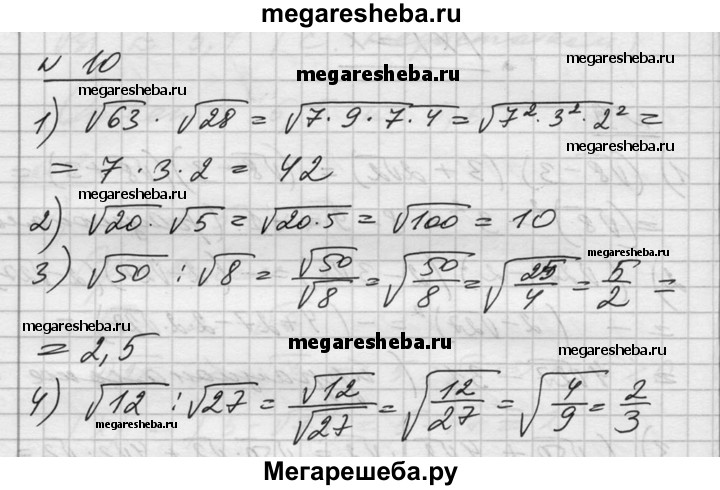 megaresheba.ru
№ 10
megaresheba.ru
megaresheba.ru
megaresheba.ru
1) √63 · √28 = √7·9·7·4 = √7²·3²·2² =
megaresheba.ru
= 7 · 3 · 2 = 42
megaresheba.ru
megaresheba.ru
2) √20 · √5 = √20·5 = √100 = 10
3) √50 : √8 = √50/√8 = √50/8 = √25/4 = 5/2 =
megaresheba.ru
megaresheba.ru
= 2,5
megaresheba.ru
megaresheba.ru
4) √12 : √27 = √12/√27 = √12/27 = √4/9 = 2/3
megaresheba.ru
megaresheba.ru
Мегарешеба.ру